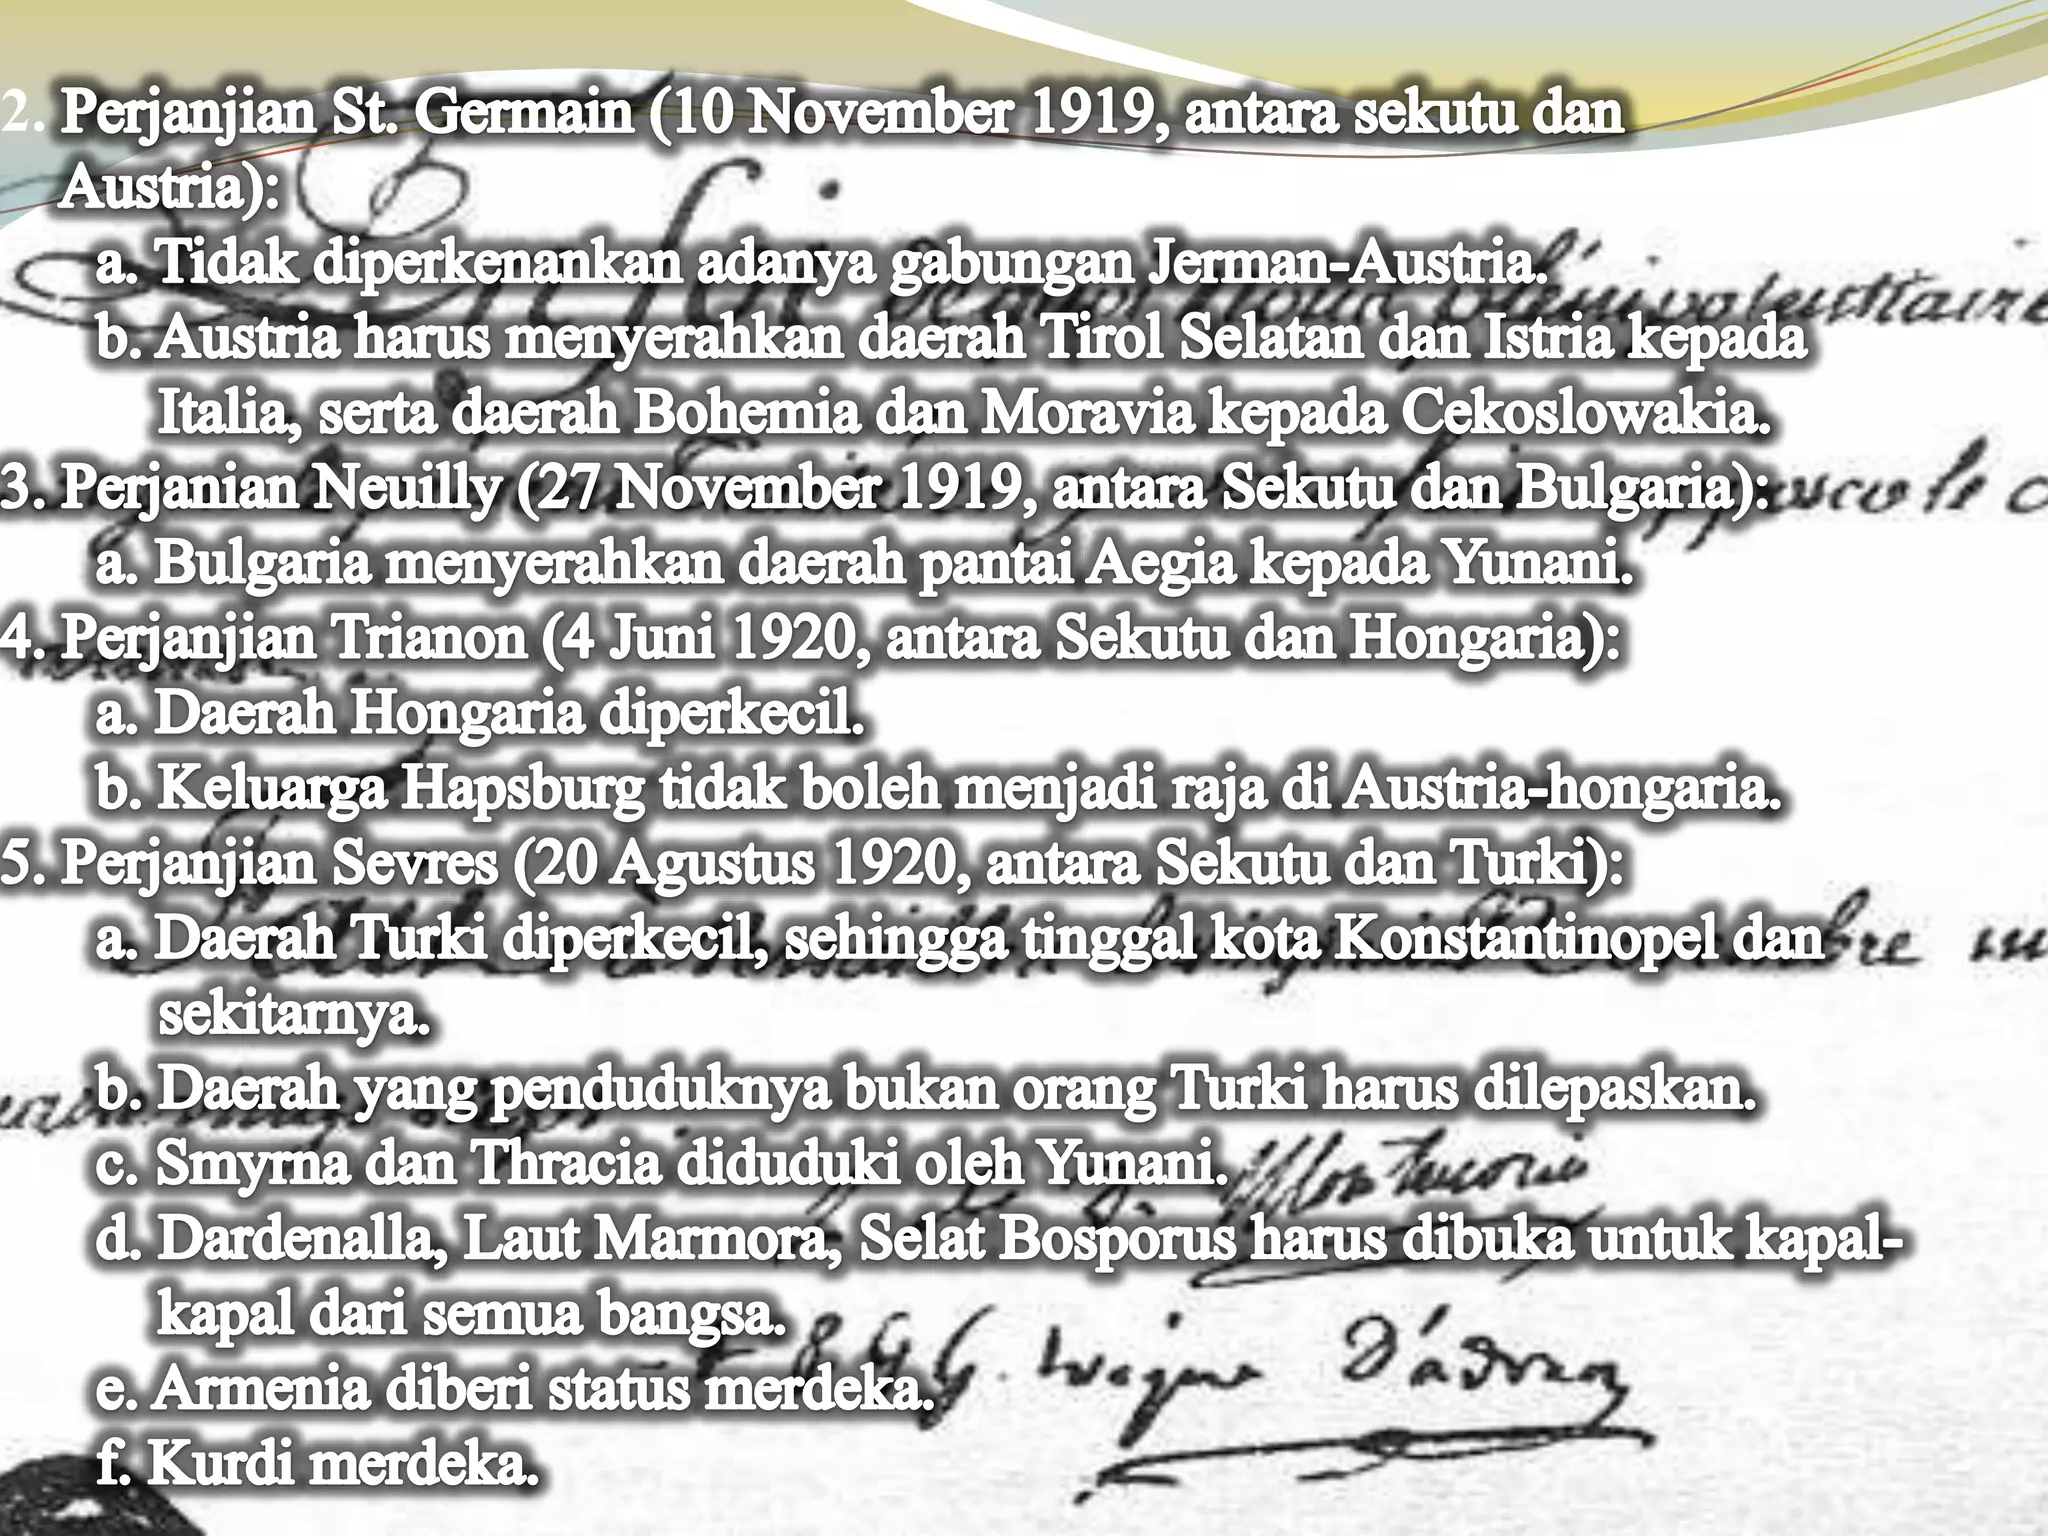 2. Perjanjian St. Germain (10 November 1919, antara sekutu dan
Austria):
a. Tidak diperkenankan adanya gabungan Jerman-Austria.
b. Austria harus menyerahkan daerah Tirol Selatan dan Istria kepada
Italia, serta daerah Bohemia dan Moravia kepada Cekoslowakia.
3. Perjanian Neuilly (27 November 1919, antara Sekutu dan Bulgaria):
a. Bulgaria menyerahkan daerah pantai Aegia kepada Yunani.
4. Perjanjian Trianon (4 Juni 1920, antara Sekutu dan Hongaria):
a. Daerah Hongaria diperkecil.
b. Keluarga Hapsburg tidak boleh menjadi raja di Austria-hongaria.
5. Perjanjian Sevres (20 Agustus 1920, antara Sekutu dan Turki):
a. Daerah Turki diperkecil, sehingga tinggal kota Konstantinopel dan
sekitarnya.
b. Daerah yang penduduknya bukan orang Turki harus dilepaskan.
c. Smyrna dan Thracia diduduki oleh Yunani.
d. Dardenalla, Laut Marmora, Selat Bosporus harus dibuka untuk kapal-
kapal dari semua bangsa.
e. Armenia diberi status merdeka.
f. Kurdi merdeka.